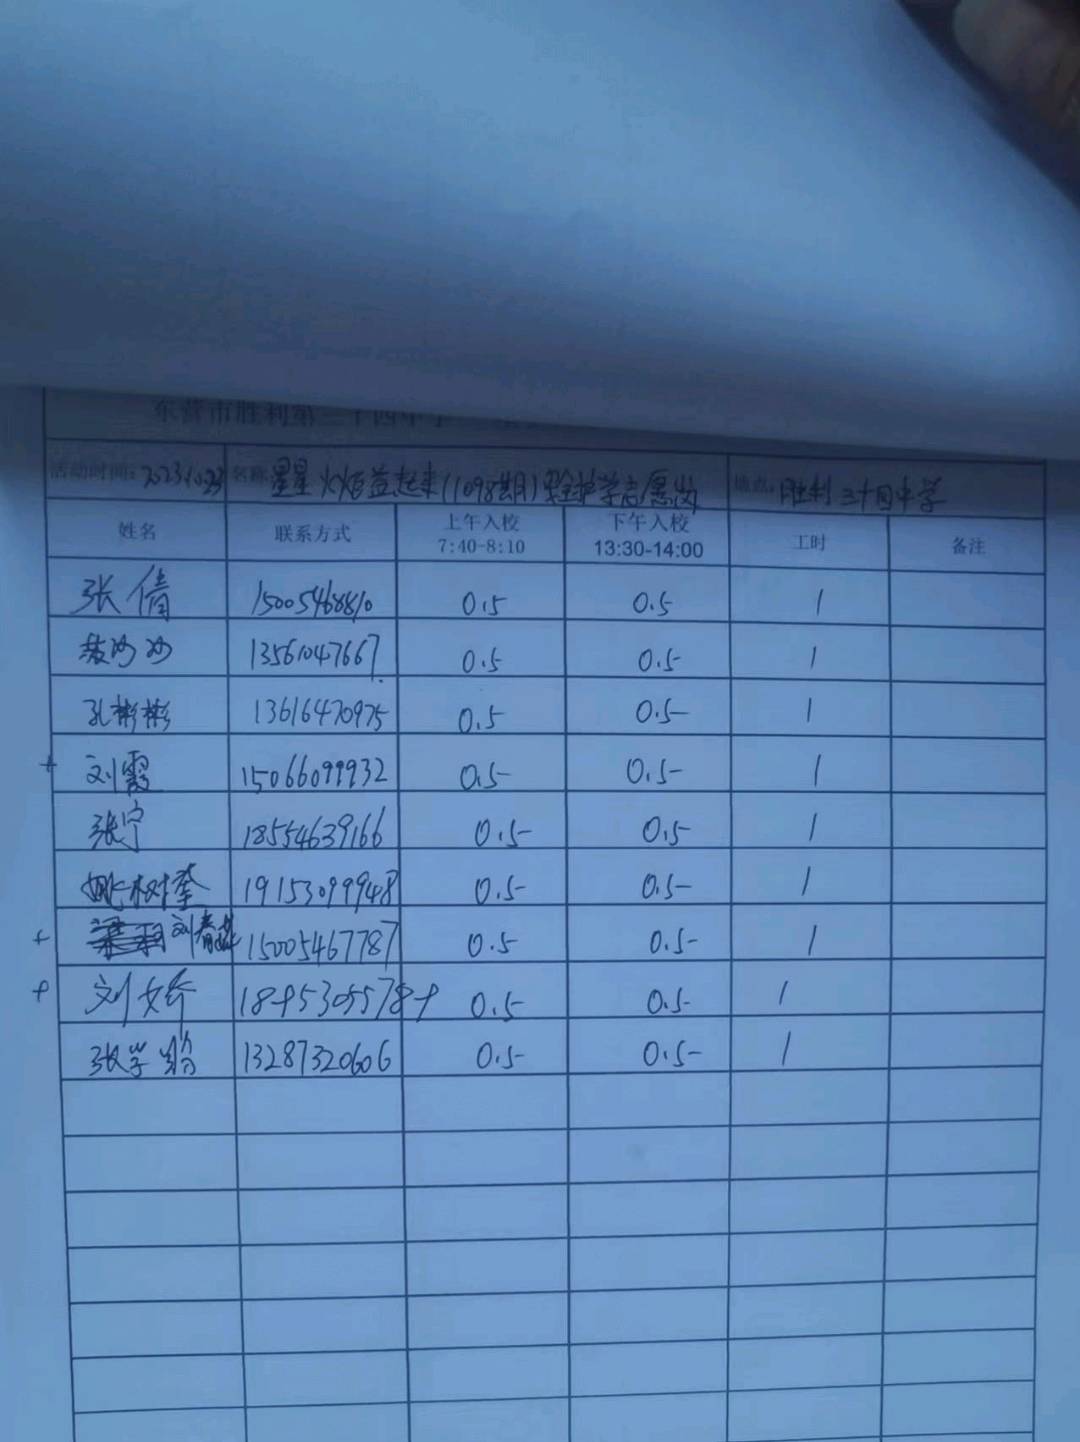 东营市胜利第三十四中学
活动时间: 20231023 名称: 星星火炬益起来(1098期)安全护学志愿岗 地点: 胜利三十四中学
姓名 联系方式 上午入校 7:40-8:10 下午入校 13:30-14:00 工时 备注
张倩 15005468810 0.5 0.5 1
13561047667 0.5 0.5 1
孔彬彬 13616470975 0.5 0.5 1
+ 刘霞 15066099932 0.5 0.5 1
张宁 18554639166 0.5 0.5 1
姚树奎 19153099948 0.5 0.5 1
+ 刘青 15005467787 0.5 0.5 1
+ 刘娇 0.5 0.5 1
张学 13287320606 0.5 0.5 1